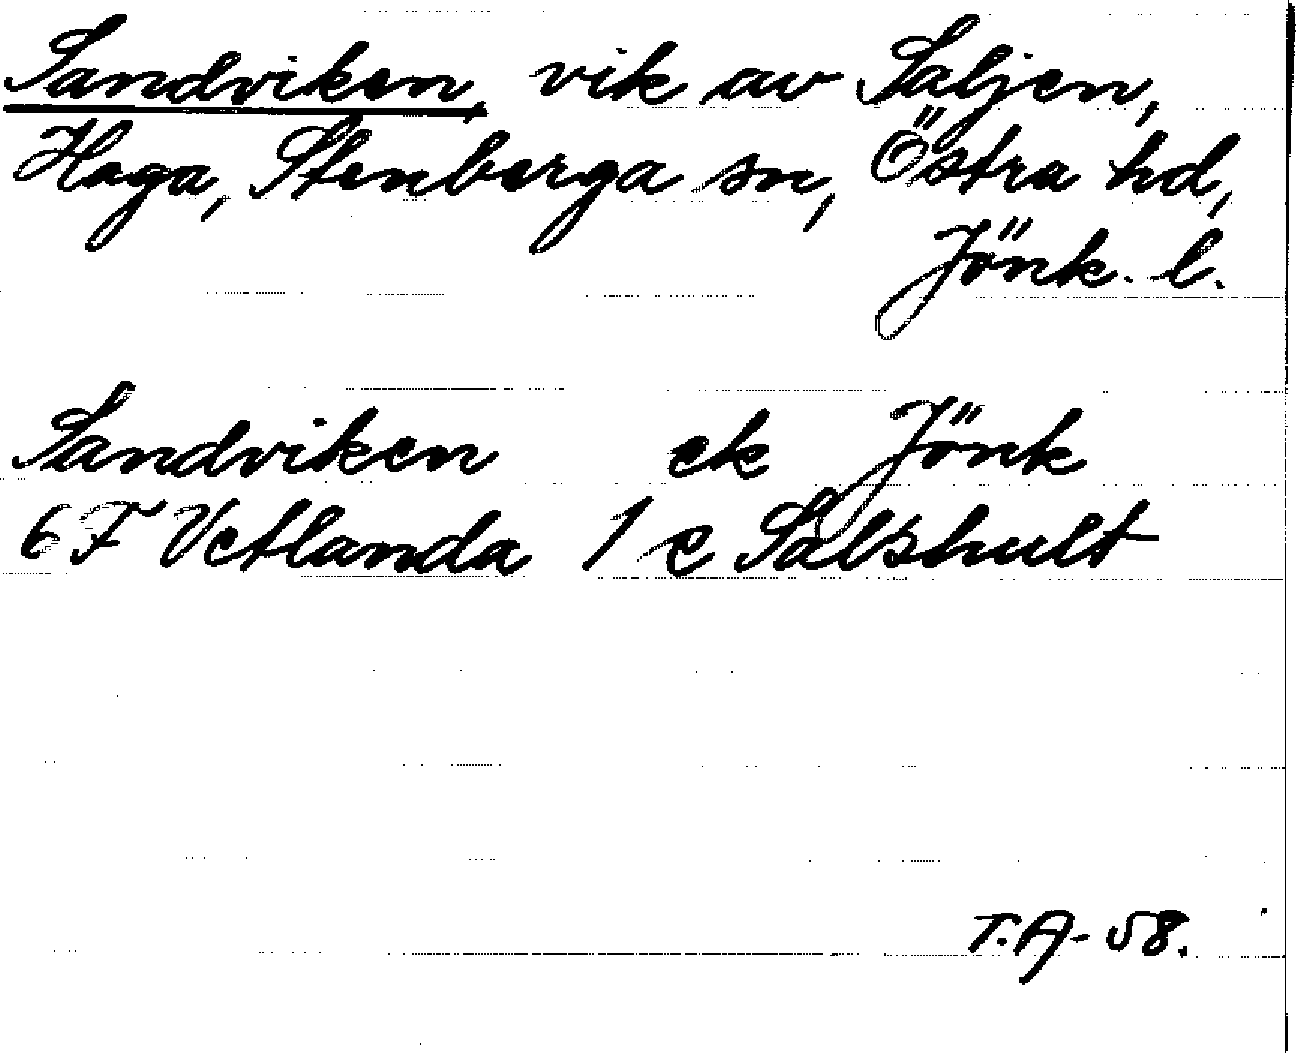 Sandviken, vik av Saljen,
Haga, Stenberga sn, Östra hd,
Jönk. l.
Sandviken ek Jönk
6 F Vetlanda 1 c Salshult
T.A-58.